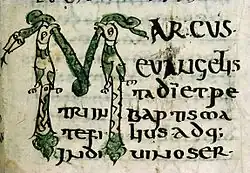 MARCUS
evangelis
ta dī et pe
tri in baptisma
te fi lius adq;
in di uino ser